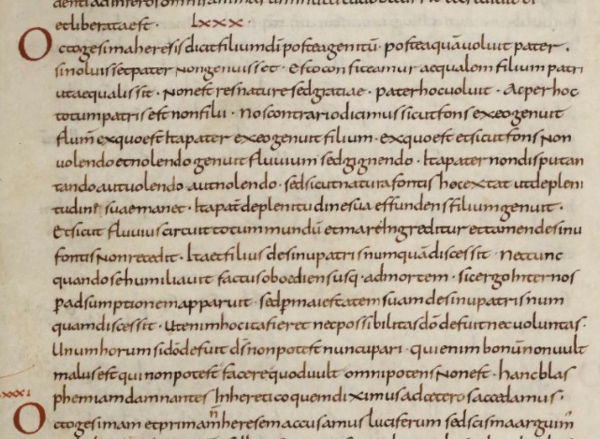 et liberata est · LXXX ·
Octogesima heresis dicit filium di postea genitū · postea quā voluit pater ·
si noluisset pater non genuisset · Ex eo conficeamur aequalem filium patri
ut aequalis sit · Non est res naturae sed gratiae · pater hoc voluit · Ac per hoc
totum patris est non filii · nos contrario dicimus sicut fons ex eo genuit
flum̄ ex quo est Ita pater ex eo genuit filium · ex quo est et sicut fons non
volendo et nolendo genuit fluvium sed gignendo · Ita pater non disputan
tando aut volendo aut nolendo · sed sicut natura fontis hoc extat ut de pleni
tudine suae manet · Ita pat̄ de plenitudine sua effundens filium genuit ·
Et sicut fluvius circuit totum mundū et mare Ingreditur et tamen de sinu
fontis non recedit · Ita et filius de sinu patris numquā discessit · nec tunc
quando se humiliavit factus oboediens usq· ad mortem · sic ergo Inter nos
p adsumptionem apparuit · sed p maiestatem suam de sinu patris num
quam discessit · Ut enim hoc ita fieret nec possibilitas dō defuit nec voluntas ·
Unum horum si dō defuit ds non potest nuncupari · qui enim bonū non vult
malus est qui non potest facere quod vult omnipotens non est · hanc blas
phemiam damnantes In heretico quem diximus ad cetero s accedamus ·
LXXXI
Octogesimam et primam heresem accusamus luciferum sed scisma arguim̄